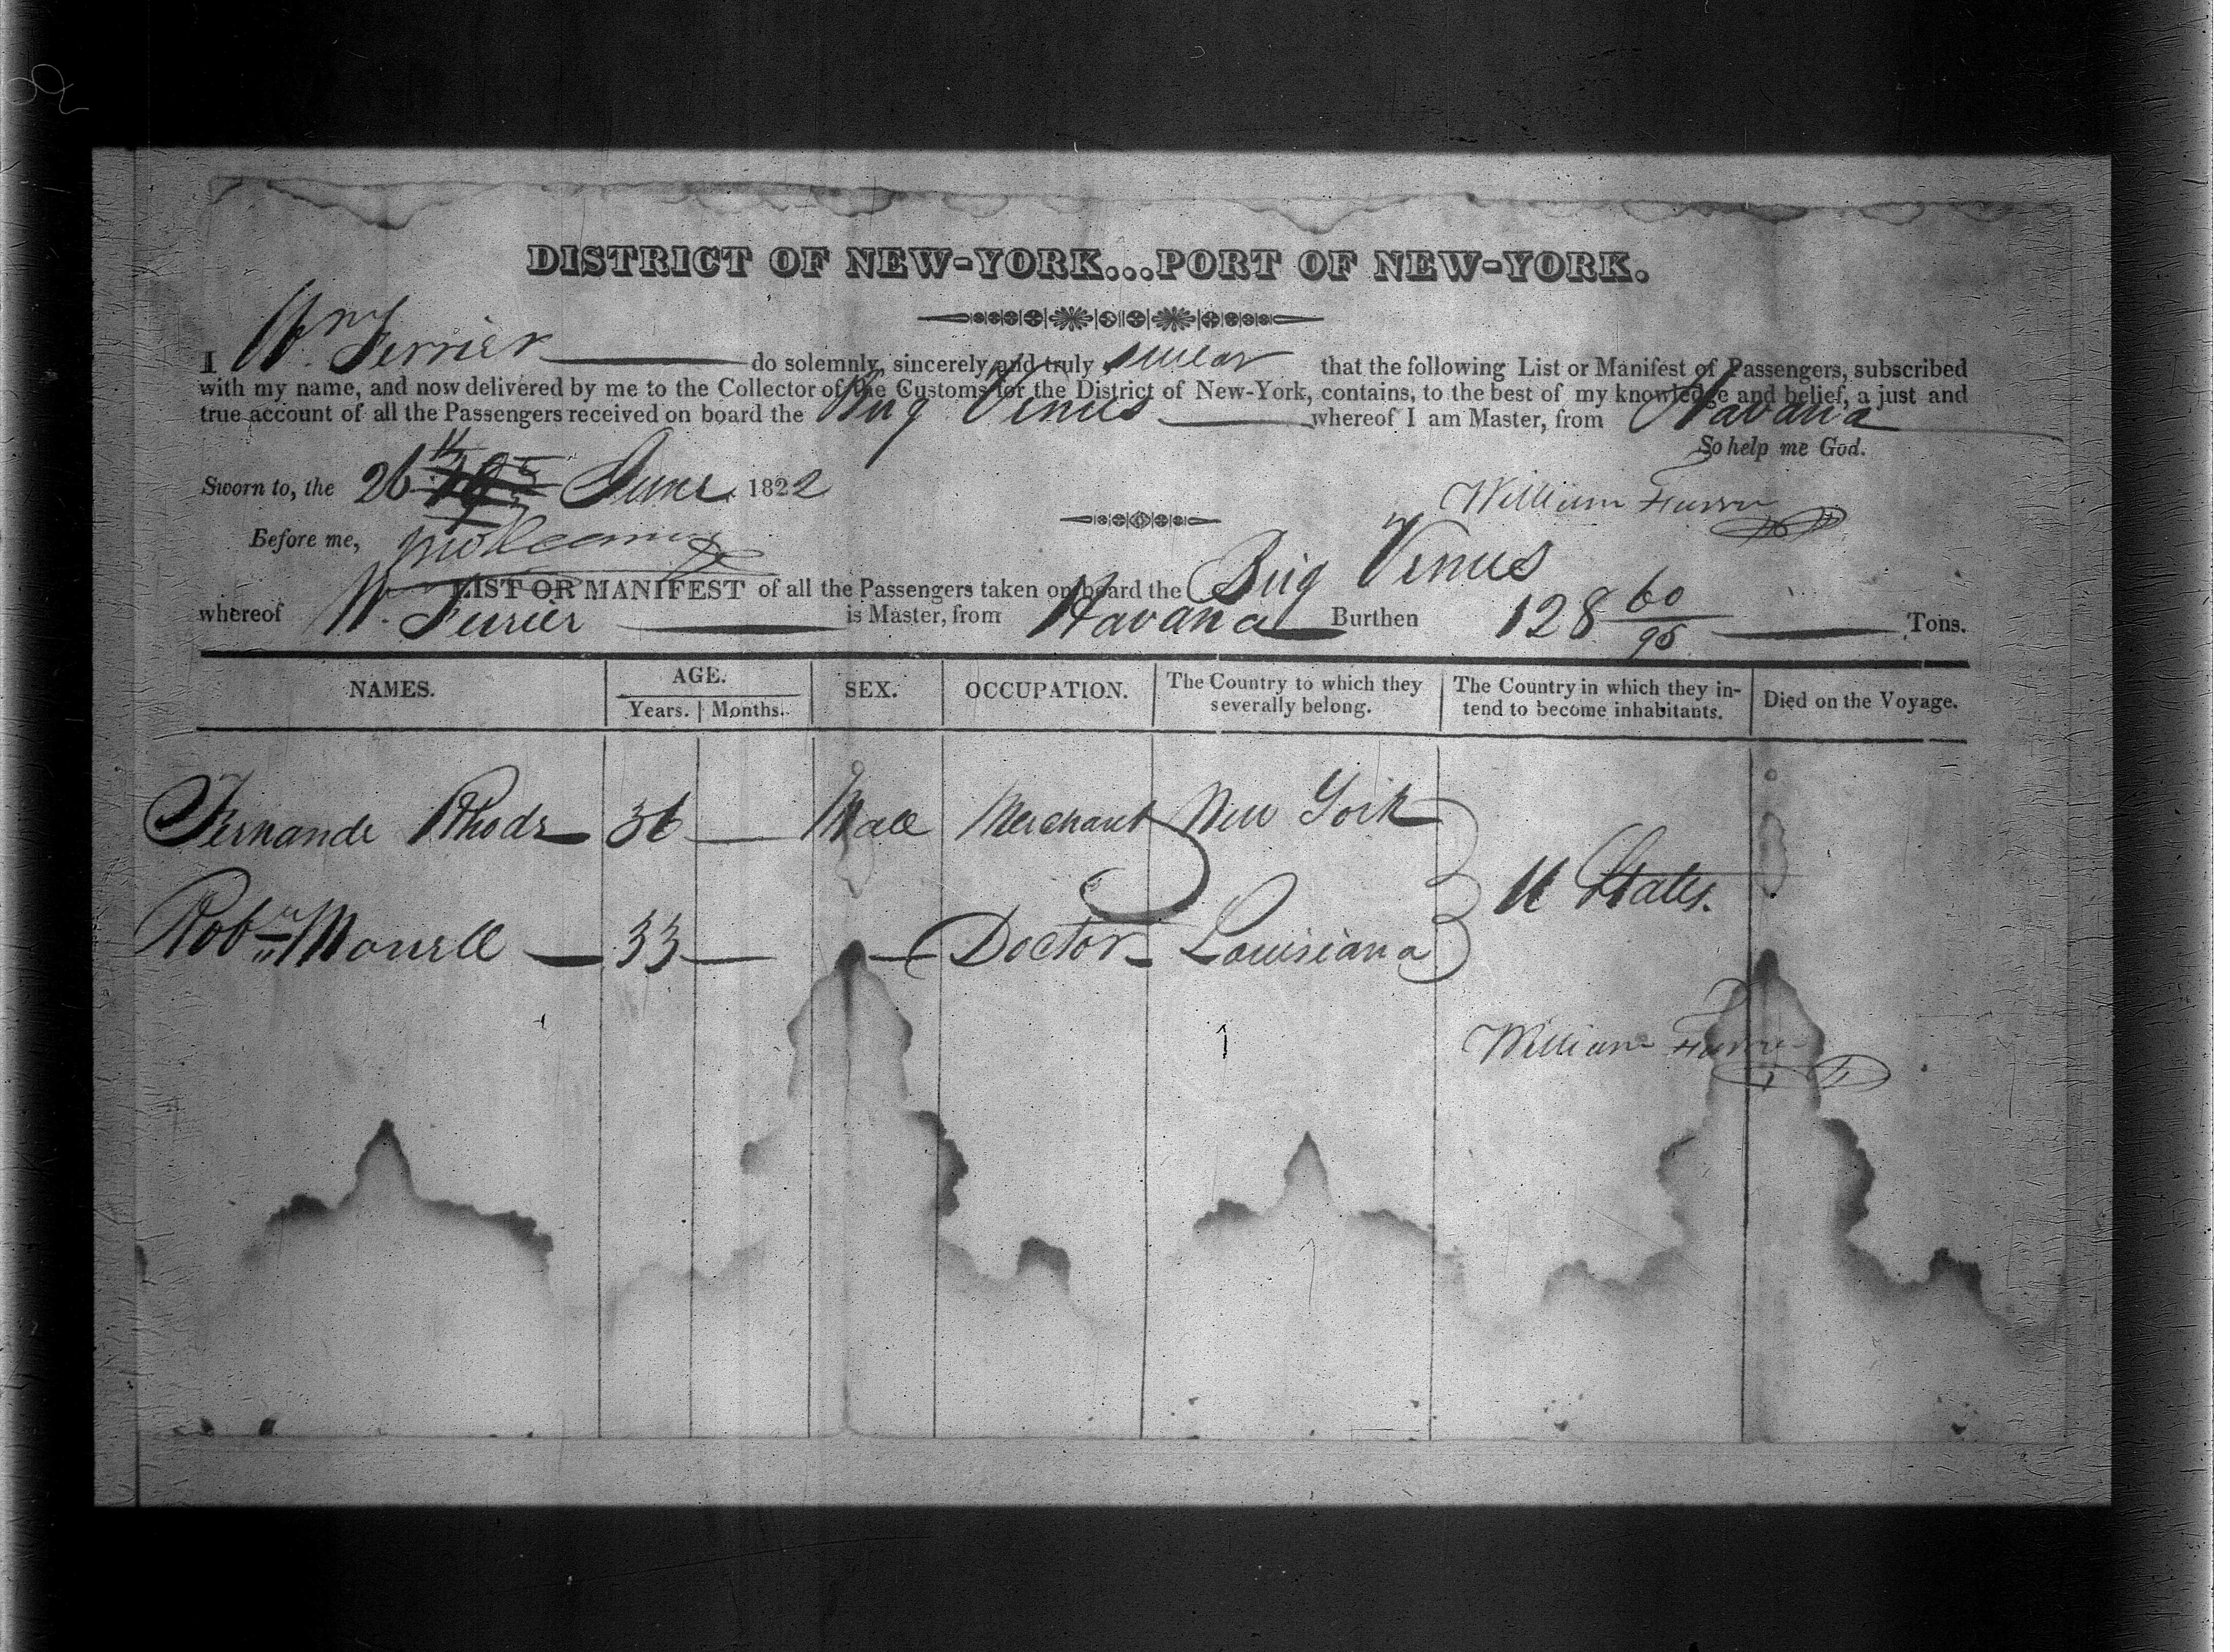 DISTRICT OF NEW-YORK...PORT OF NEW-YORK.
I Wm Ferrier do solemnly, sincerely and truly swear that the following List or Manifest of Passengers, subscribed
with my name, and now delivered by me to the Collector of the Customs for the District of New-York, contains, to the best of my knowledge and belief, a just and
true account of all the Passengers received on board the Brig Venus whereof I am Master, from Havana
So help me God.
Sworn to, the 26th June 1822
William
Before me,
LIST OR MANIFEST of all the Passengers taken on board the Brig Venus
whereof W. Ferrier is Master, from Havana Burthen 128 60/95 Tons.
NAMES. AGE. SEX. OCCUPATION. The Country to which they severally belong. The Country in which they intend to become inhabitants. Died on the Voyage.
Years. Months.
Fernande Rhods 36 — Male Merchant New York
U States.
Robt Morrell — 33 — — Doctor — Louisiana
William